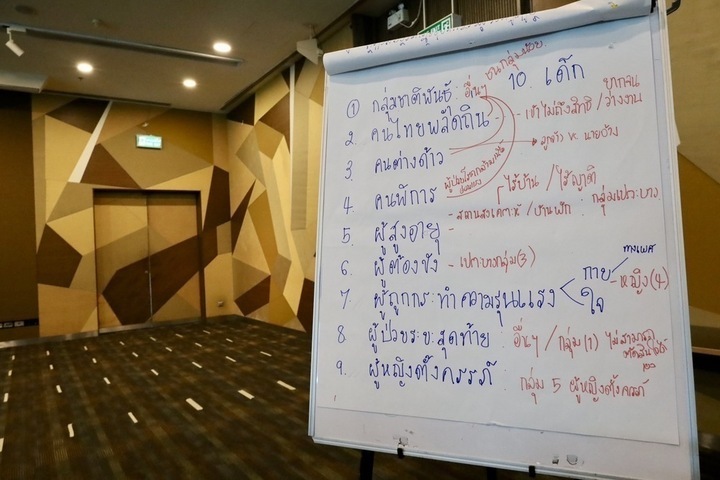 ชนกลุ่มน้อย
① กลุ่มชาติพันธุ์: อื่นๆ 10. เด็ก
ยากจน
2. คนไทยพลัดถิ่น - เข้าไม่ถึงสิทธิ / ว่างงาน
3. คนต่างด้าว ลูกจ้าง vs นายจ้าง
4 คนพิการ ไร้บ้าน / ไร้ญาติ
- สถานสงเคราะห์ / บ้านพัก : กลุ่มเปราะบาง
5. ผู้สูงอายุ -
6. ผู้ต้องขัง - เปราะบางกลุ่ม (3)
ทางเพศ
7. ผู้ถูกกระทำความรุนแรง < กาย ใจ - หญิง (4)
8 ผู้ป่วยระยะสุดท้าย : อื่นๆ / กลุ่ม (1) ไม่สามารถ
9. ผู้หญิงตั้งครรภ์ : กลุ่ม 5 ผู้หญิงตั้งครรภ์